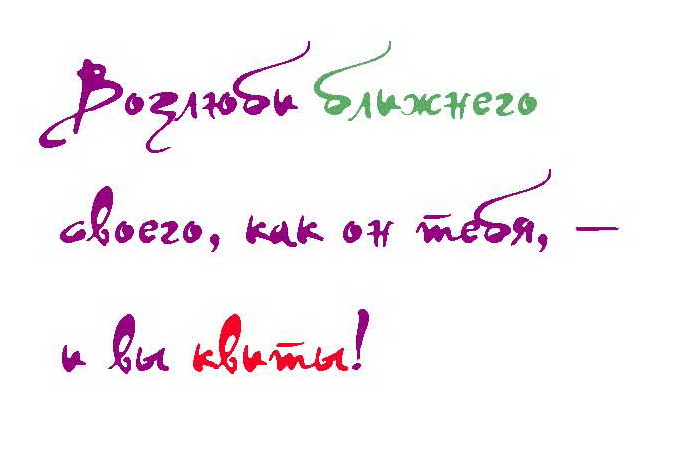 Возлюби ближнего
своего, как он тебя, —
и вы квиты!